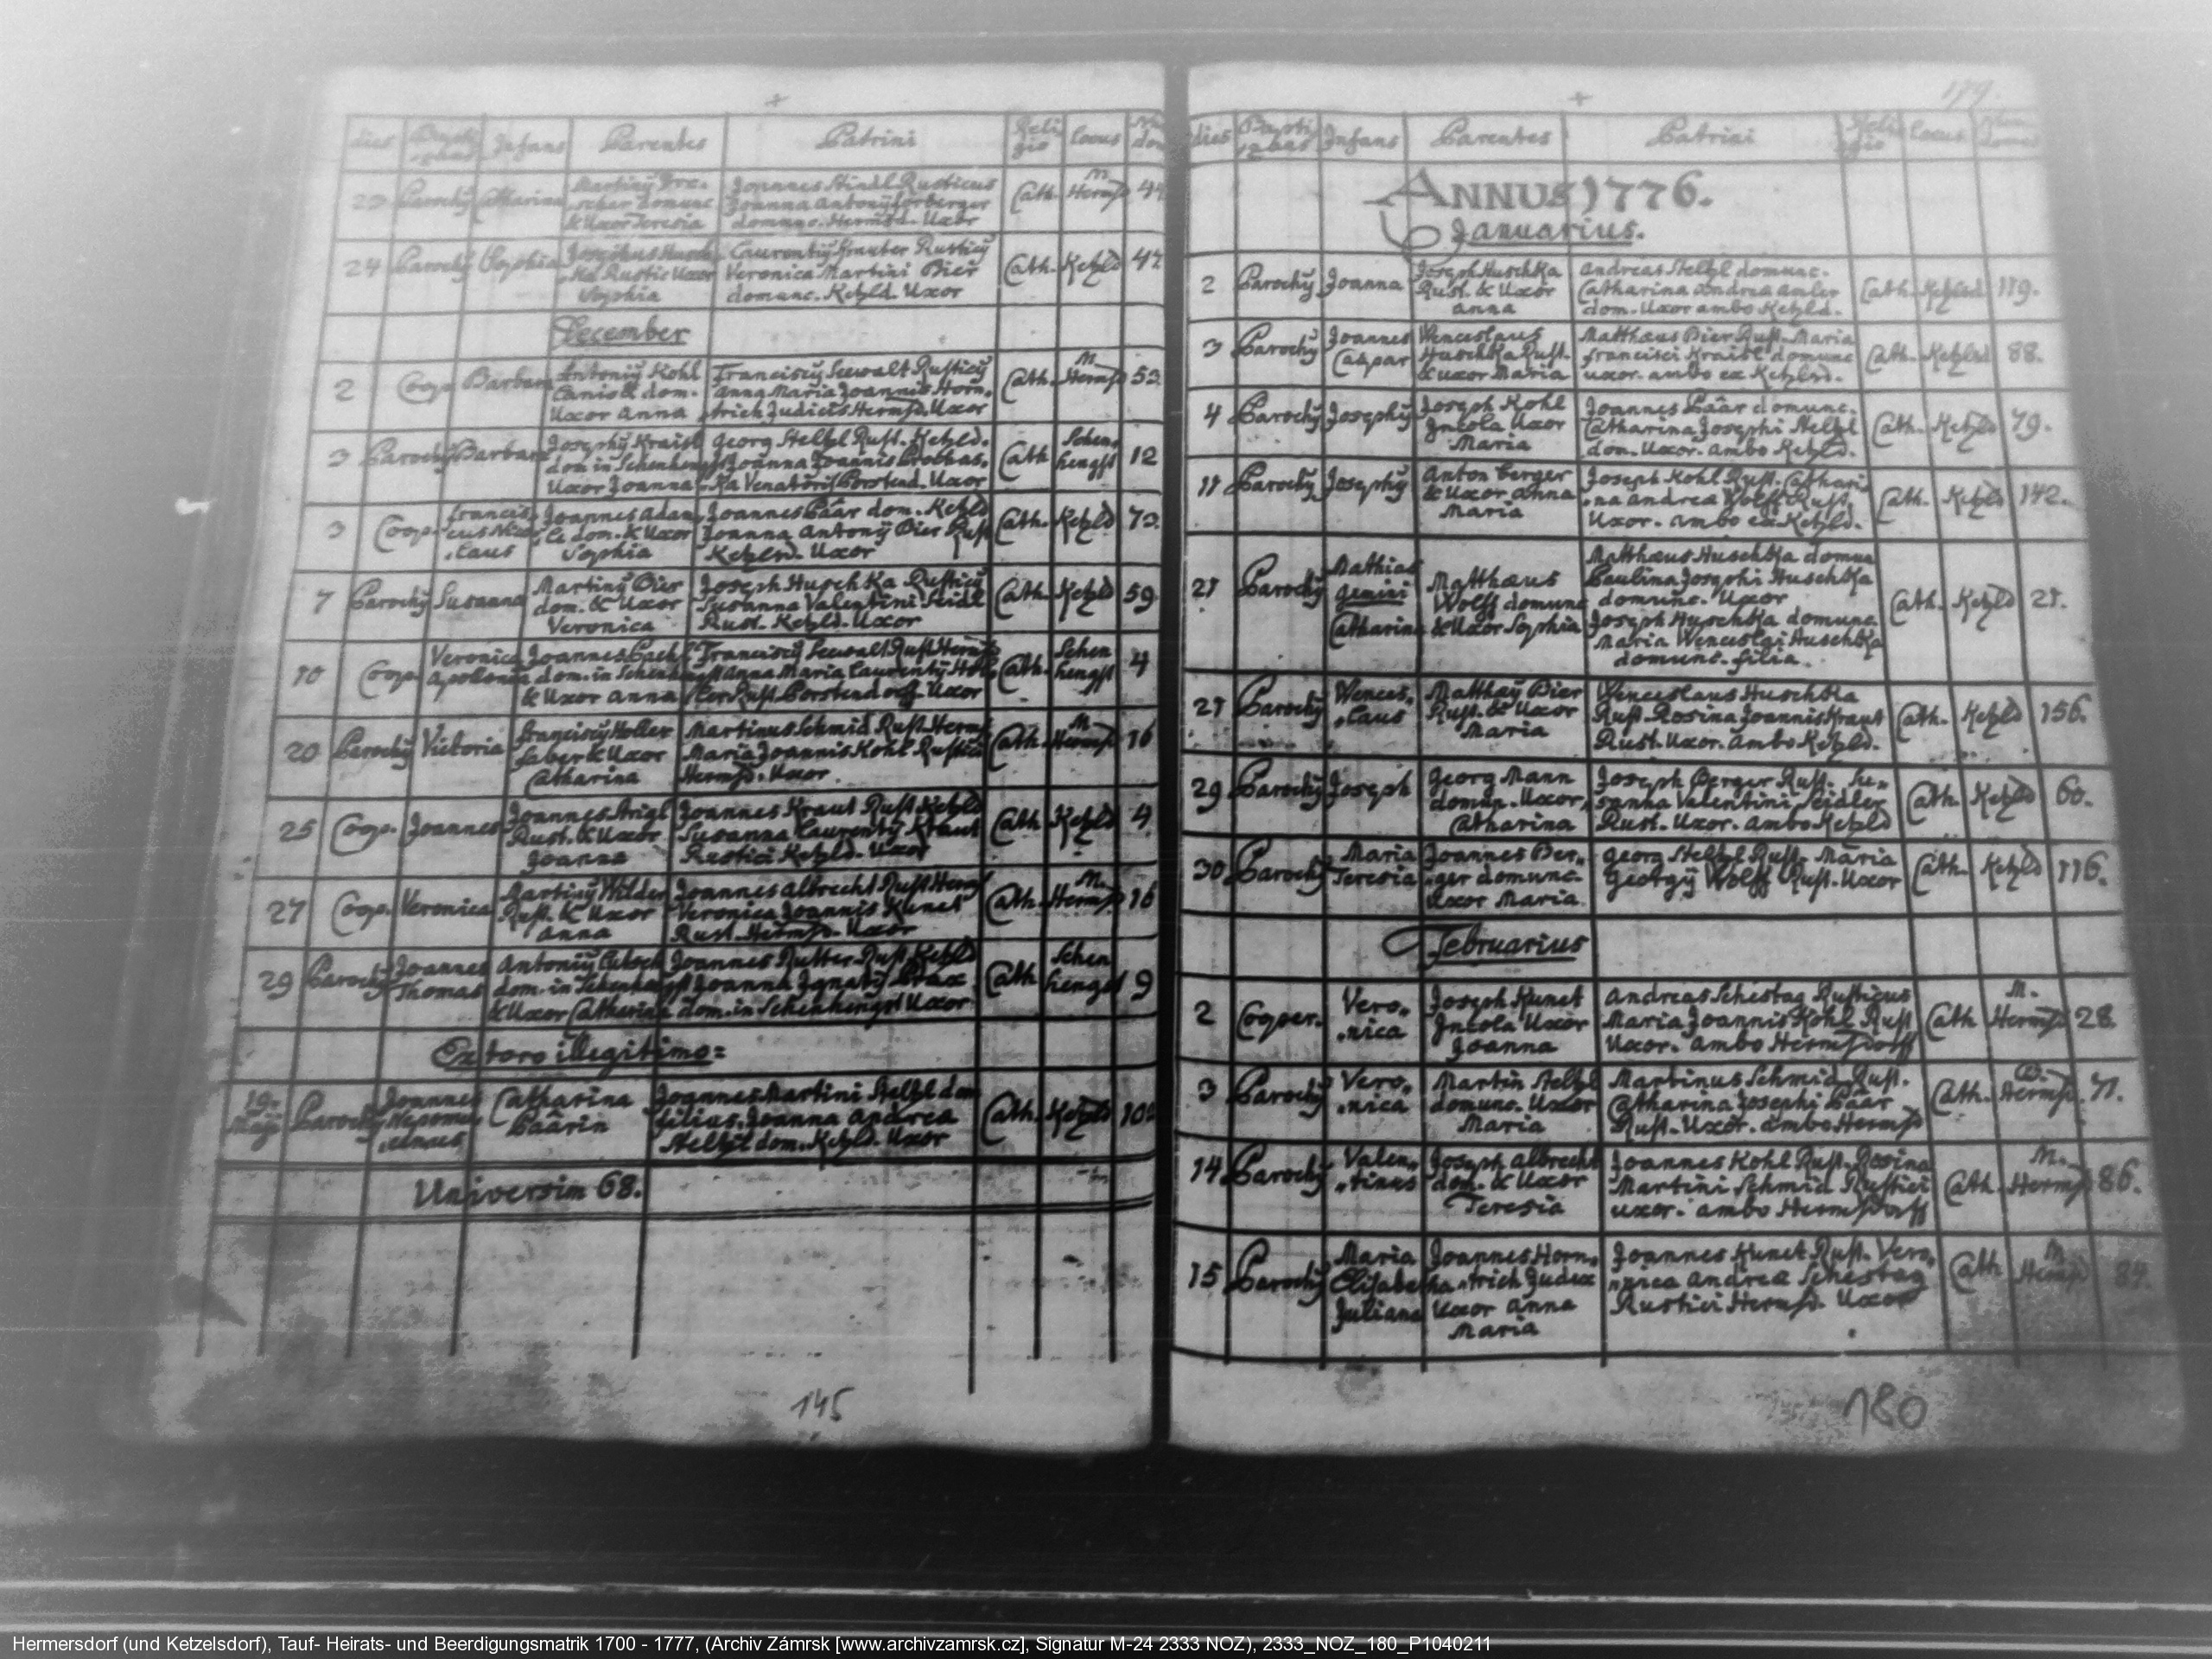 dies Infans Parentes Patrini Religio locus
23 Parochy Catharina
Martiny
scher domunc
& Uxor Teresia
Joannes Stindl Rusticus
Joanna Antony
domunc. Hermsd. Uxor
Cath. M. Hermsd 44
24 Parochy Sophia
Josephus Husch
ka Rustic Uxor
Sophia
Laurentiy Rusticy
Veronica Martini Bier
domunc. Ketzld. Uxor
Cath. Ketzld 47
December
2 Coop. Barbara
Antoniy Kohl
dom.
Uxor Anna
Franciscy Seewalt Rusticy
Anna Maria Joannis Horn,
,trich Judicis Hermsd. Uxor
Cath. M. Hermsd 53.
3 Parochy Barbara
Josephy Kraisl
dom in Schenhengst
Uxor Joanna
Georg Steltzl Rust. Ketzld.
Joanna Joannis Prochas,
,ka Venatoris Porstend. Uxor
Cath Schen,
hengst 12
3 Coop.
Francis,
cus Nico
,laus
Joannes Adam
dom. & Uxor
Sophia
Joannes Päär dom. Ketzld
Joanna Antony Bier Rust
Ketzlsd. Uxor
Cath. Ketzld 73.
7 Parochy Susanna
Martiny Bier
dom. & Uxor
Veronica
Joseph Huschka Rusticy
Susanna Valentini Seidl
Rust. Ketzld. Uxor
Cath. Ketzld 59
10 Coop.
Veronica
Apollonia
Joannes
dom. in Schenhengst
& Uxor Anna
Franciscy Seewalt Rust Hermsd
Anna Maria Laurentiy Hol
ler Rust. Porstendorf. Uxor
Cath. Schen
hengst 4
20 Parochy Victoria
Franciscy Holler
faber & Uxor
Catharina
Martinus Schmid Rust. Hermsd
Maria Joannis Kohl Rustici
Hermsd. Uxor.
Cath. M. Hermsd 16
25 Coop. Joannes
Joannes Strigl
Rust. & Uxor
Joanna
Joannes Kraut Rust Ketzld
Susanna Laurenty Kraut
Rustici Ketzld. Uxor
Cath Ketzld 4
27 Coop. Veronica
Martiny Wilder
Rust. & Uxor
Anna
Joannes Albrecht Rust Hermsd
Veronica Joannis Kunet
Rust. Hermsd. Uxor
Cath. M. Hermsd 16
29 Parochy
Joannes
Thomas
Antoniy Lutsch
dom. in Schenhengst
& Uxor Catharina
Joannes Rutter Rust. Ketzld
Joanna Ignaty
dom. in Schenhengst Uxor
Cath Schen
hengst 9
Ex toro illegitimo:
19.
Maji Parochy
Joannes
Nepomu,
,cenus
Catharina
Päärin
Joannes Martini Steltzl dom
filius. Joanna Andrea
Steltzl dom. Ketzld. Uxor
Cath. Ketzld
Universim 68.
145
179.
dies Baptizans Infans Parentes Patrini Religio locus
ANNUS 1776.
Januarius.
2 Parochy Joanna
Joseph Huschka
Rust. & Uxor
Anna
Andreas Steltzl domunc.
Catharina Andrea Amler
dom. Uxor ambo Ketzld.
Cath. Ketzlsd 119.
3 Parochy
Joannes
Caspar
Venceslaus
Huschka Rust.
& uxor Maria
Matthæus Bier Rust. Maria
Francisci Kraisl domunc
uxor. ambo ex Ketzlsd.
Cath. Ketzlsd 88.
4 Parochy Josephy
Joseph Kohl
Incola Uxor
Maria
Joannes Päär domunc.
Catharina Josephi Steltzl
dom. Uxor. ambo Ketzld.
Cath. Ketzld 79.
11 Parochy Josephy
Anton Berger
& Uxor Anna
Maria
Joseph Kohl Rust. Cathari
,na Andrea Wolff Rust,
Uxor. ambo ex Ketzld.
Cath. Ketzld 142.
21 Parochy
Mathias
gemini
Catharina
Matthæus
Wolff domunc
& Uxor Sophia
Matthæus Huschka domun
Paulina Josephi Huschka
domunc. Uxor
Joseph Huschka domunc
Maria Wenceslai Huschka
domunc. filia.
Cath. Ketzld 21.
21 Parochy
Wences,
,laus
Matthäy Bier
Rust. & Uxor
Maria
Venceslaus Huschka
Rust. Rosina Joannis Kraut
Rust. Uxor. ambo Ketzld.
Cath. Ketzld 156.
29 Parochy Joseph
Georg Mann
domun. Uxor,
Catharina
Joseph Berger Rust. Su,
,sanna Valentini Seidler
Rust. Uxor. ambo Ketzld
Cath. Ketzld 60.
30 Parochy
Maria
Teresia
Joannes Ber,
,ger domunc.
Uxor Maria
Georg Steltzl Rust. Maria
Georgy Wolff Rust. Uxor
Cath. Ketzld 116.
Februarius
2 Cooper.
Vero,
,nica
Joseph Kunet
Incola Uxor
Joanna
Andreas Schestag Rusticus
Maria Joannis Kohl Rust
Uxor. ambo Hermsdorff
Cath M. Hermsd 28.
3 Parochy
Vero,
,nica
Martin Steltzl
domunc. Uxor
Maria
Martinus Schmid Rust.
Catharina Josephi Päär
Rust. Uxor. ambo Hermsd
Cath. Hermsd. 71.
14 Parochy
Valen,
,tinus
Joseph Albrecht
dom. & Uxor
Teresia
Joannes Kohl Rust. Rosina
Martini Schmid Rustici
uxor. ambo Hermsdorff
Cath. M. Hermsd 86.
15 Parochy
Maria
Elisabetha
Juliana
Joannes Horn,
,trich Judex
Uxor Anna
Maria
Joannes Kunet Rust. Vero,
,nica Andrea Schestag
Rustici Hermsd. Uxor
Cath M. Hermsd 84.
180
Hermersdorf (und Ketzelsdorf), Tauf- Heirats- und Beerdigungsmatrik 1700 - 1777, (Archiv Zámrsk [www.archivzamrsk.cz], Signatur M-24 2333 NOZ), 2333_NOZ_180_P1040211